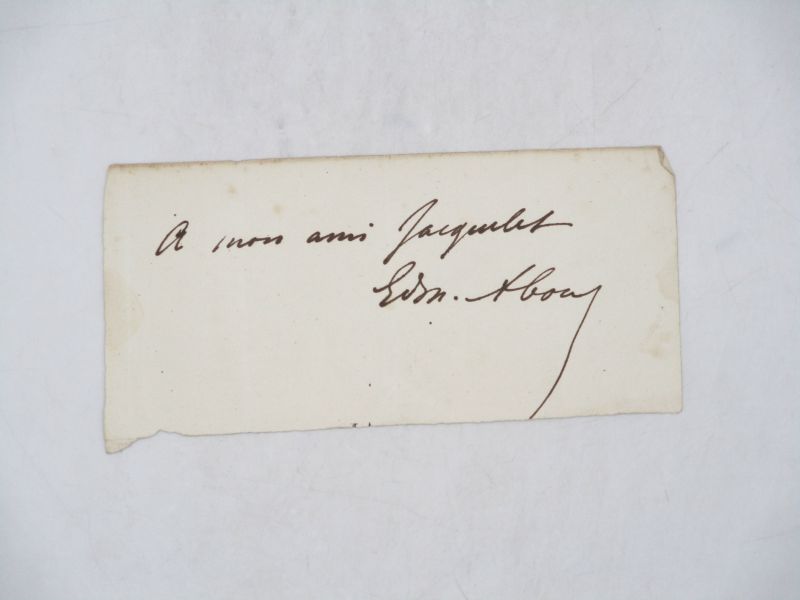 A mon ami Jacquelet
Edm. About